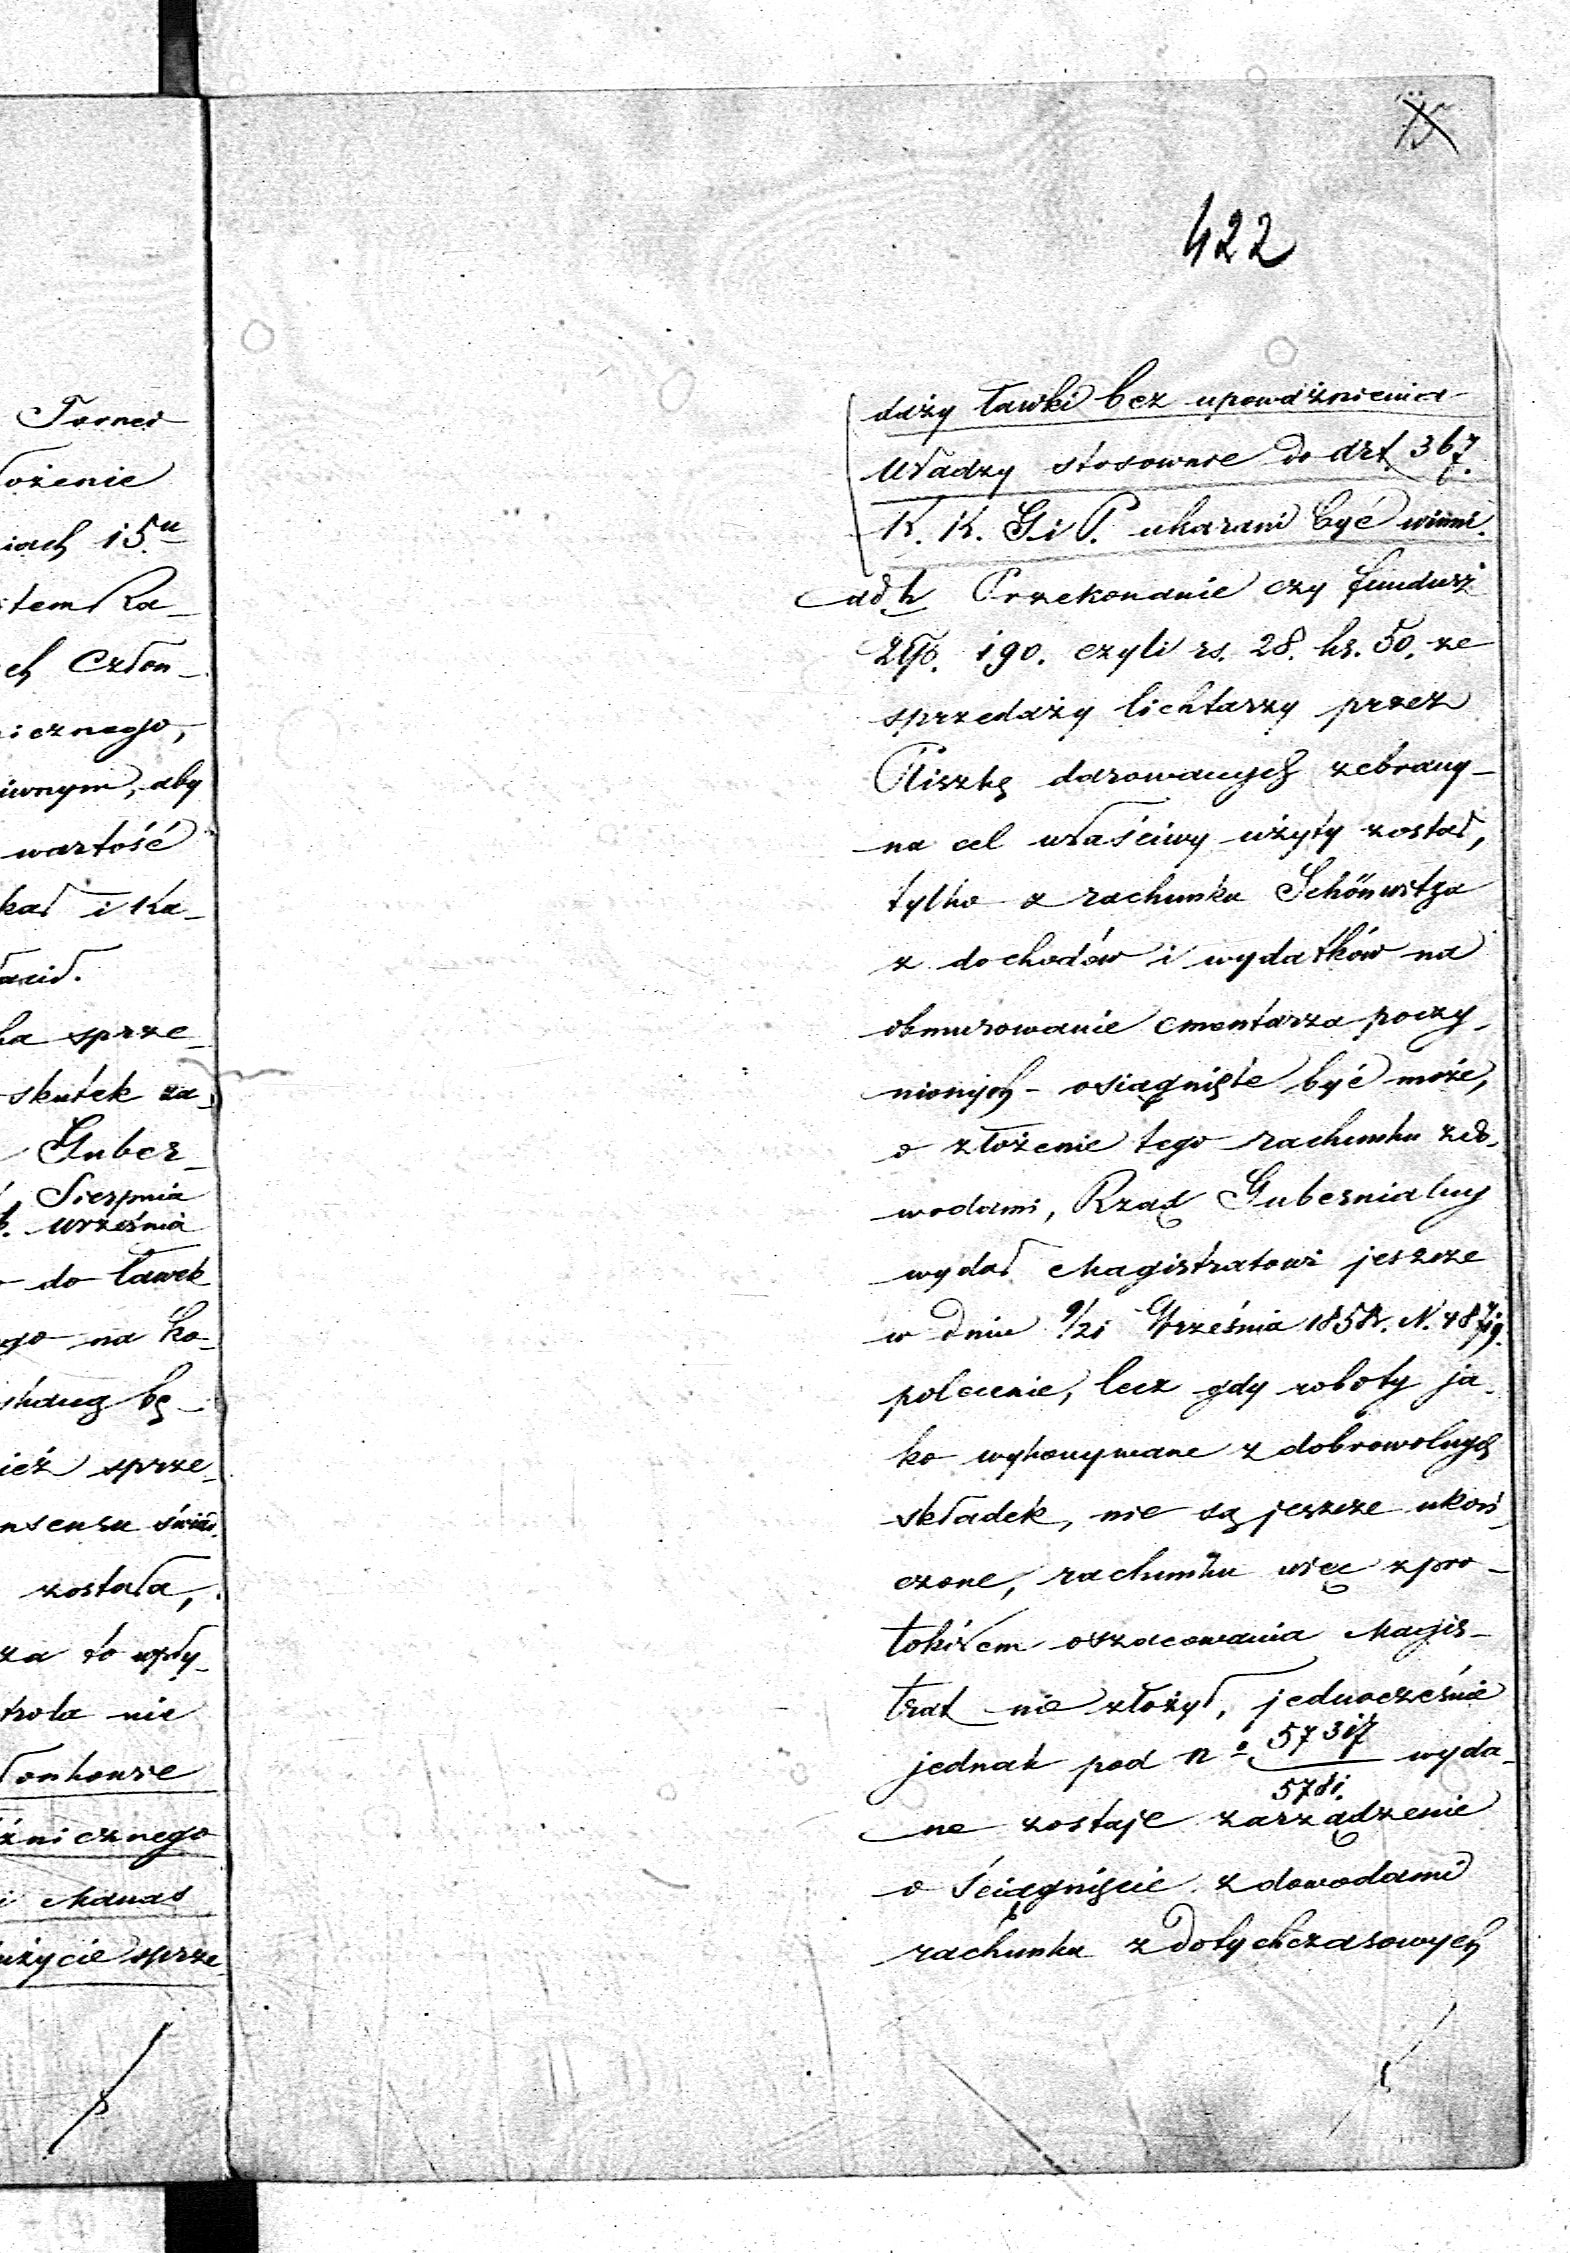 Tornei
ożenie
iach 15u
stem Ka-
ch Człon-
icznego,
iwnym, aby
wartość
kał i Ka-
łacił.
ka sprze-
skutek za-
Guber-
Sierpnia
Września
do Ławek
ego na ko-
bę-
ież sprze-
nsensu świad
została,
za to wpły-
trola nie
łonkowie
źnicznego
i Manas
użycie sprze-
422
daży Ławki bez upoważnienia
Władzy stosownie do Art. 367.
K. K. G. i P. ukarani być winni.
ad h Przekonanie czy fundusz
Złp. 190. czyli rs. 28. kr. 50. ze
sprzedaży lichtarzy przez
Fiszkę darowanych zebrany-
na cel właściwy użyty został,
tylko z rachunku Schönwitza
z dochodów i wydatków na
obmurowanie cmentarza poczy-
nionych - osiągnięte być może,
o złożenie tego rachunku z do-
wodami, Rząd Gubernialny
wydał Magistratowi jeszcze
w dniu 9/21 Września 1858r. N. 48719.
polecenie, lecz gdy roboty ja-
ko wykonywane z dobrowolnych
składek, nie są jeszcze ukoń-
czone, rachunku więc z pro-
tokółem oszacowania Magis-
trat nie złożył, jednocześnie
jednak pod No 57317/5781. wyda-
ne zostaje zarządzenie
o ściągnięcie z dowodami
rachunku z dotychczasowych